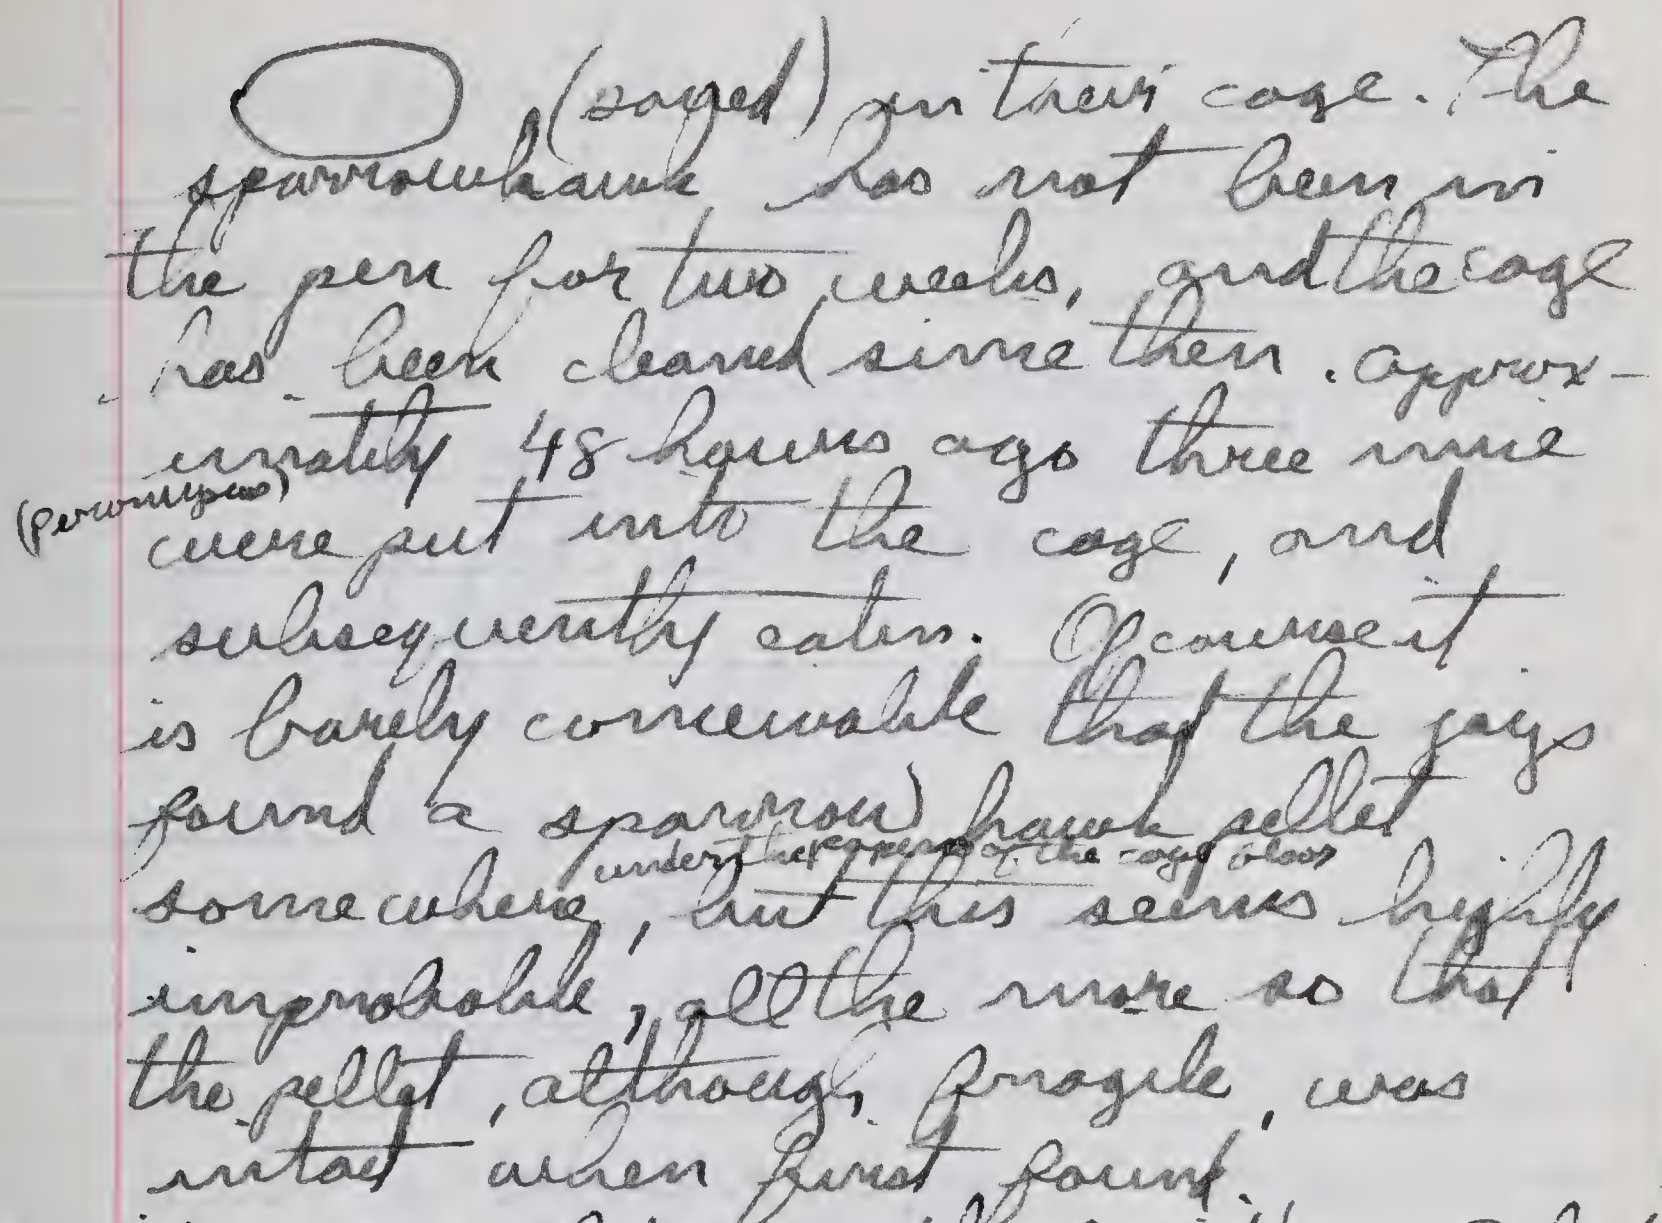 (saved) in their cage. The
sparrowhawk has not been in
the pen for two weeks, and the cage
has been cleaned since then. Approx-
imately 48 hours ago three mice
(peromyscus)
were put into the cage, and
subsequently eaten. Of course it
is barely conceivable that the jays
found a sparrow hawk pellet
under the papers of the cage floor
somewhere, but this seems highly
improbable, all the more so that
the pellet, although fragile, was
intact when first found.